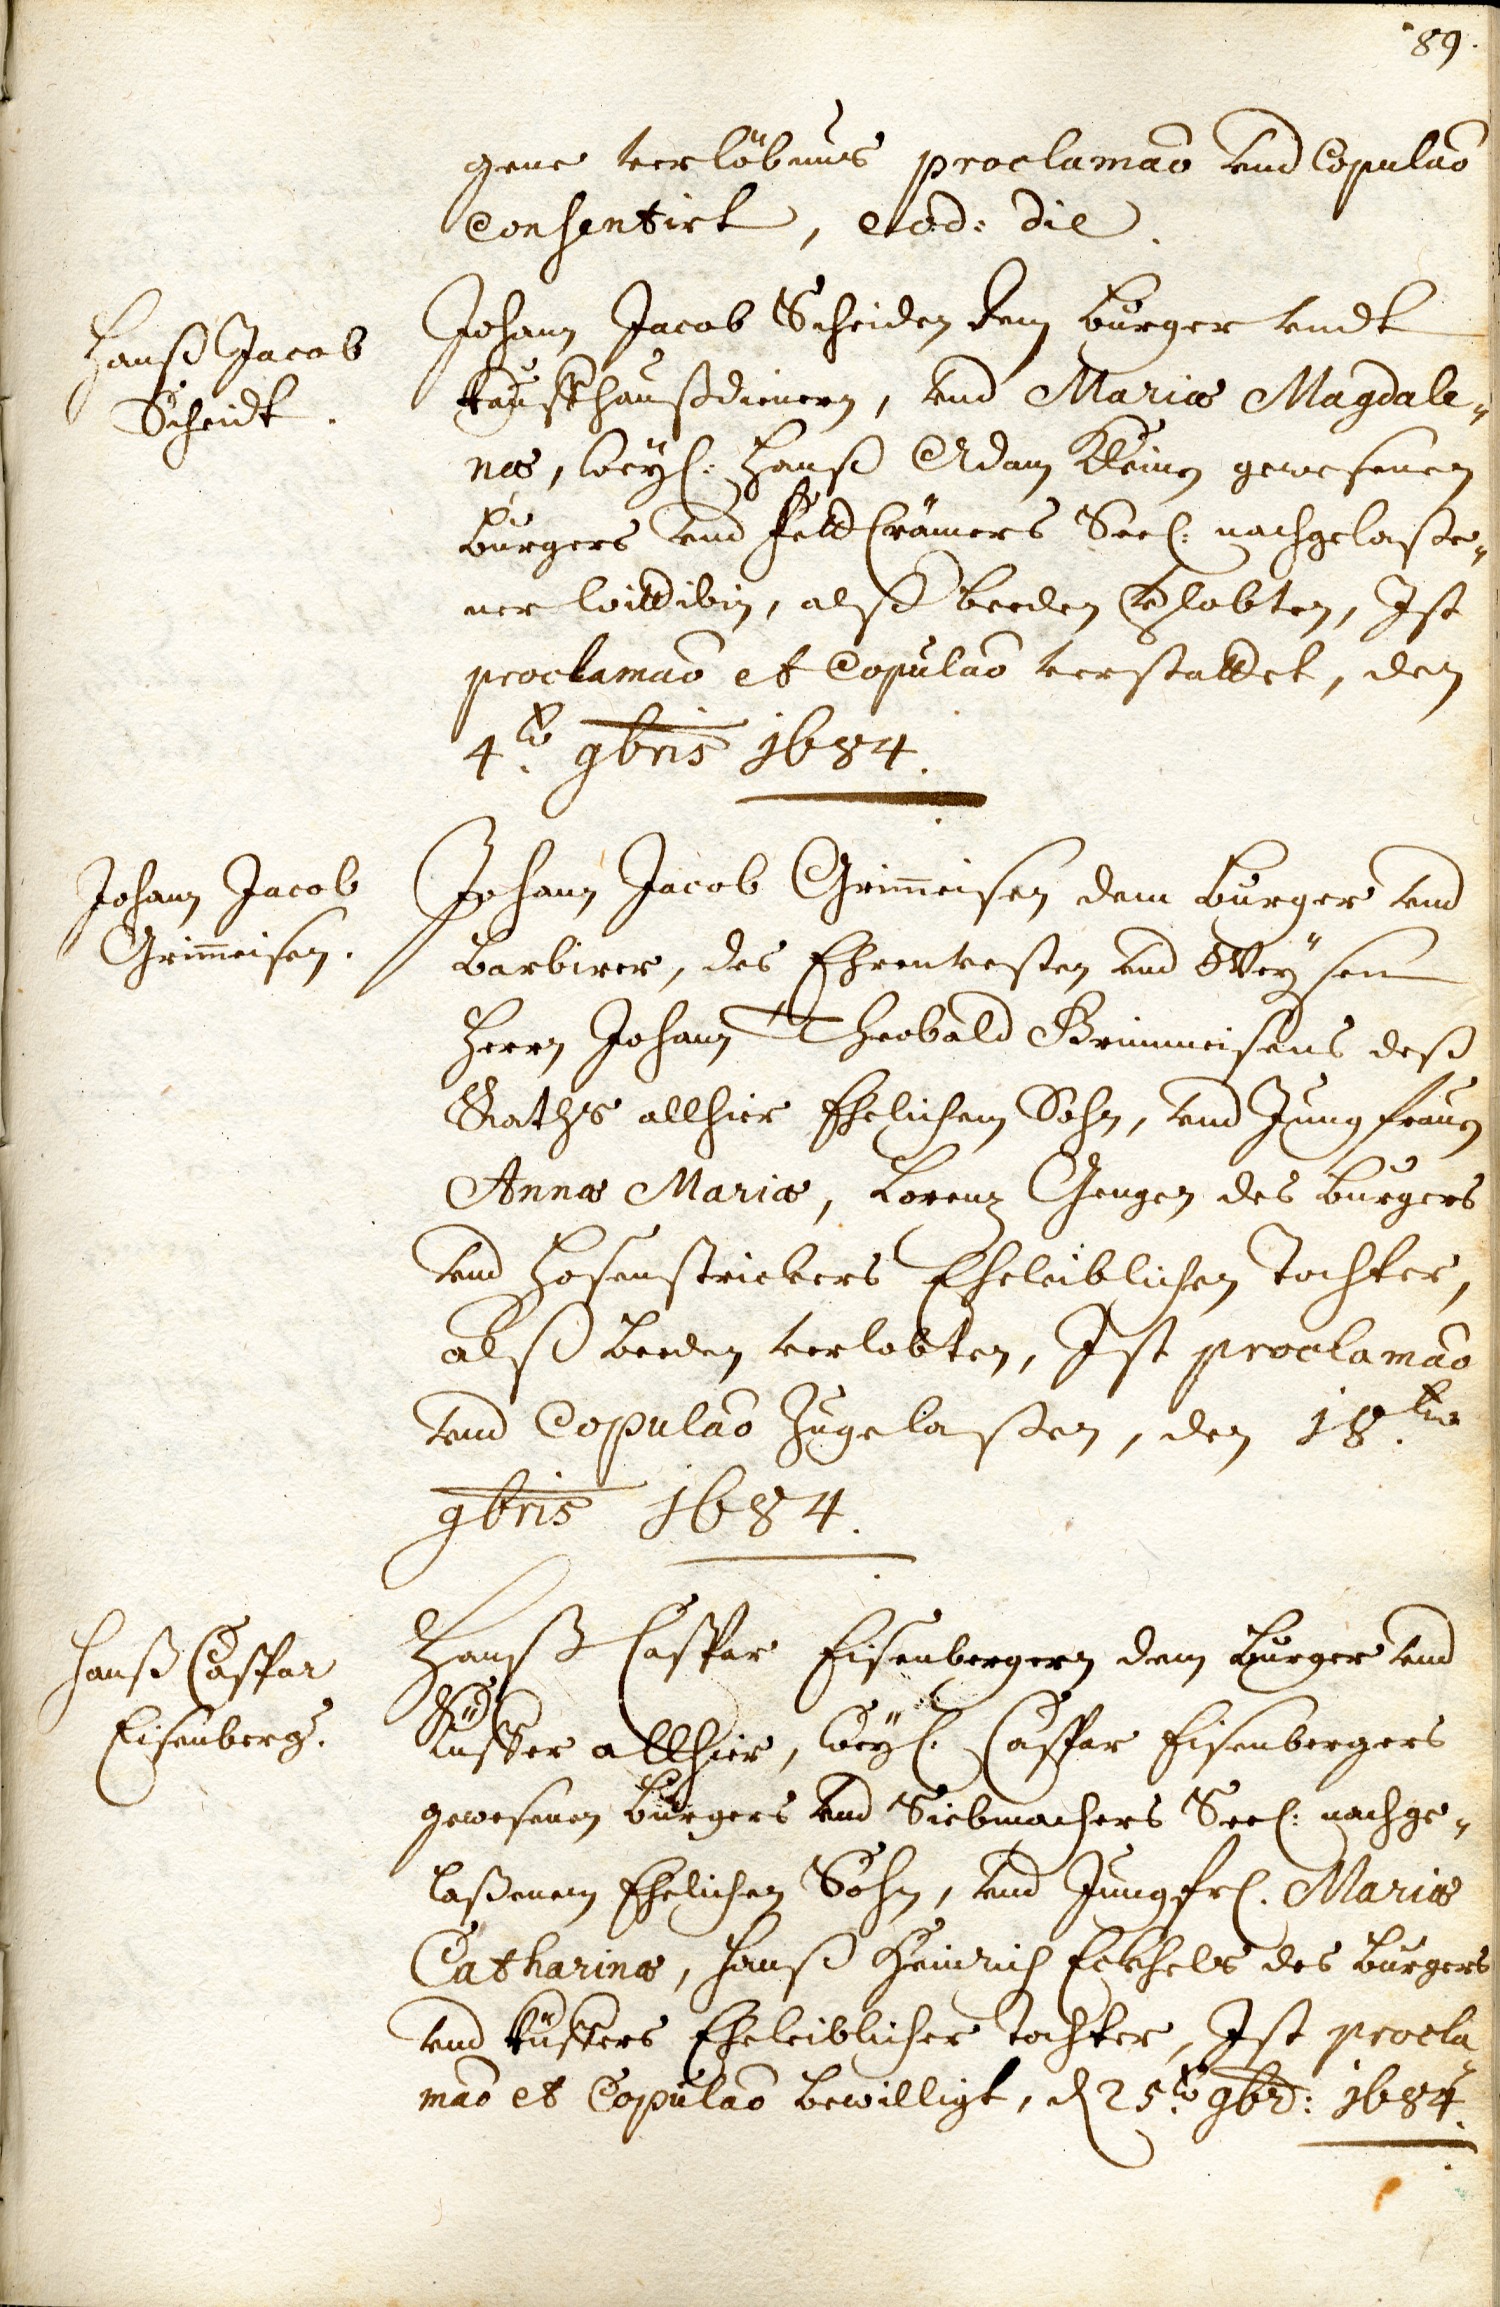 89.
gene verlöbnus proclamaõ vnd Copulaõ
Consentirt, eod: die.
Hanß Jacob
Scheidt.
Johann Jacob Scheiden dem burger vndt
Kauffhaußdienern, vnd Mariæ Magdale„
næ, weyl: Hanß Adam Kleinen gewesenen
burgers vnd feld Crämers Seel: nachgelaße„
ner wittibin, alß beeden Vlobten, Ist
proclamaõ et Copulaõ verstattet, den
4.ten 9bris 1684.
Johann Jacob
Grim̄eisen.
Johann Jacob Grim̄eisen dem burger vnd
barbirer, des Ehrenvesten vnd Weysen
Herrn Johann Theobald Grimmeisens deß
Raths allhier Ehelichem Sohn, vnd Jungfrauen
Annæ Mariæ, Lorenz Gengen des burgers
vnd Hosenstrickers Eheleiblichen Tochter,
alß beeden verlobten, Ist proclamaõ
vnd Copulaõ Zugelaßen, den 18.ten
9bris 1684.
Hanß Caspar
Eisenberg.
Hanß Caspar Eisenbergern dem burger vnd
Küffer allhier, weyl. Caspar Eisenbergers
gewesenen burgers vnd Siebmachers Seel: nachge„
laßenem Ehelichen Sohn, vnd Jungfrl. Mariæ
Catharinæ, Hanß Heinrich Eckhels des burgers
vnd Küffers Eheleiblicher Tochter, Ist procla„
maõ et Copulaõ bewilligt, d 25.ten 9br: 1684.